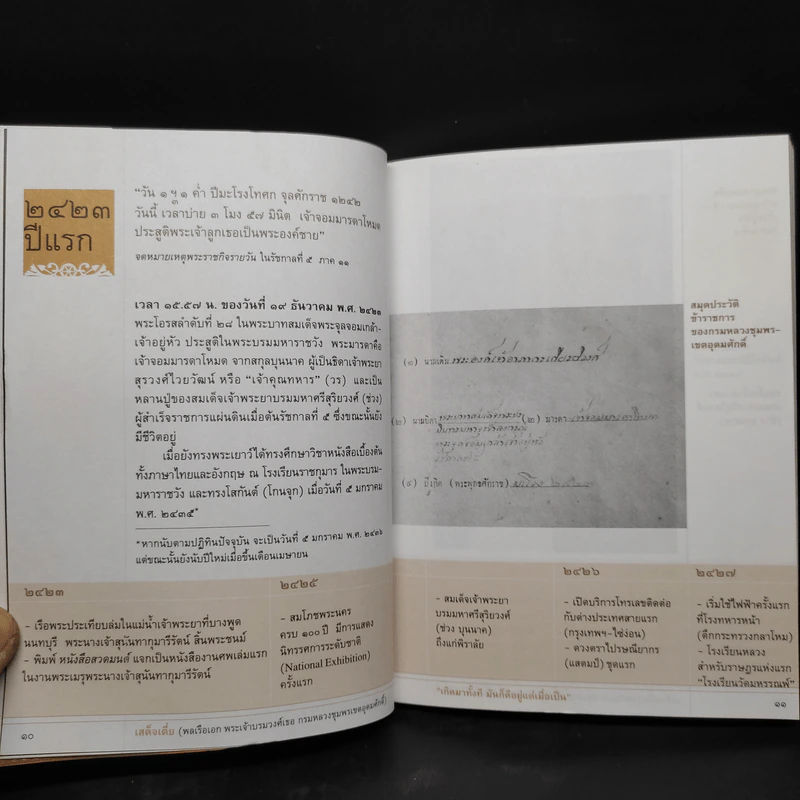 ๒๔๒๓
ปีแรก
"วัน ๑ ๑ ค่ำ ปีมะโรงโทศก จุลศักราช ๑๒๔๒
วันนี้ เวลาบ่าย ๓ โมง ๕๗ มินิต เจ้าจอมมารดาโหมด
ประสูติพระเจ้าลูกเธอเป็นพระองค์ชาย"
จดหมายเหตุพระราชกิจรายวัน ในรัชกาลที่ ๕ ภาค ๑๑
เวลา ๑๕.๕๗ น. ของวันที่ ๑๙ ธันวาคม พ.ศ. ๒๔๒๓
พระโอรสลำดับที่ ๒๘ ในพระบาทสมเด็จพระจุลจอมเกล้า-
เจ้าอยู่หัว ประสูติในพระบรมมหาราชวัง พระมารดาคือ
เจ้าจอมมารดาโหมด จากสกุลบุนนาค ผู้เป็นธิดาเจ้าพระยา
สุรวงศ์ไวยวัฒน์ หรือ "เจ้าคุณทหาร" (วร) และเป็น
หลานปู่ของสมเด็จเจ้าพระยาบรมมหาศรีสุริยวงศ์ (ช่วง)
ผู้สำเร็จราชการแผ่นดินเมื่อต้นรัชกาลที่ ๕ ซึ่งขณะนั้นยัง
มีชีวิตอยู่
เมื่อยังทรงพระเยาว์ได้ทรงศึกษาวิชาหนังสือเบื้องต้น
ทั้งภาษาไทยและอังกฤษ ณ โรงเรียนราชกุมาร ในพระบรม-
มหาราชวัง และทรงโสกันต์ (โกนจุก) เมื่อวันที่ ๕ มกราคม
พ.ศ. ๒๔๓๕*
*หากนับตามปฏิทินปัจจุบัน จะเป็นวันที่ ๕ มกราคม พ.ศ. ๒๔๓๖
แต่ขณะนั้นยังนับปีใหม่เมื่อขึ้นเดือนเมษายน
๒๔๒๓
- เรือพระประเทียบล่มในแม่น้ำเจ้าพระยาที่บางพูด
นนทบุรี พระนางเจ้าสุนันทากุมารีรัตน์ สิ้นพระชนม์
- พิมพ์ หนังสือสวดมนต์ แจกเป็นหนังสืองานศพเล่มแรก
ในงานพระเมรุพระนางเจ้าสุนันทากุมารีรัตน์
๒๔๒๕
- สมโภชพระนคร
ครบ ๑๐๐ ปี มีการแสดง
นิทรรศการระดับชาติ
(National Exhibition)
ครั้งแรก
๑๐
เสด็จเตี่ย (พลเรือเอก พระเจ้าบรมวงศ์เธอ กรมหลวงชุมพรเขตอุดมศักดิ์)
สมุดประวัติ
ข้าราชการ
ของกรมหลวงชุมพร-
เขตอุดมศักดิ์
(๑) นามเดิม พระองค์เจ้าอาภากรเกียรติวงศ์
(๒) นามบิดา
(๓) มารดา
(๔) ปีเกิด (พระพุทธศักราช)
- สมเด็จเจ้าพระยา
บรมมหาศรีสุริยวงศ์
(ช่วง บุนนาค)
ถึงแก่พิราลัย
๒๔๒๖
- เปิดบริการโทรเลขติดต่อ
กับต่างประเทศสายแรก
(กรุงเทพฯ-ไซ่ง่อน)
- ดวงตราไปรษณียากร
(แสตมป์) ชุดแรก
๒๔๒๗
- เริ่มใช้ไฟฟ้าครั้งแรก
ที่โรงทหารหน้า
(ตึกกระทรวงกลาโหม)
- โรงเรียนหลวง
สำหรับราษฎรแห่งแรก
"โรงเรียนวัดมหรรณพ์"
"เกิดมาทั้งที มันก็ดีอยู่แต่เมื่อเป็น"
๑๑